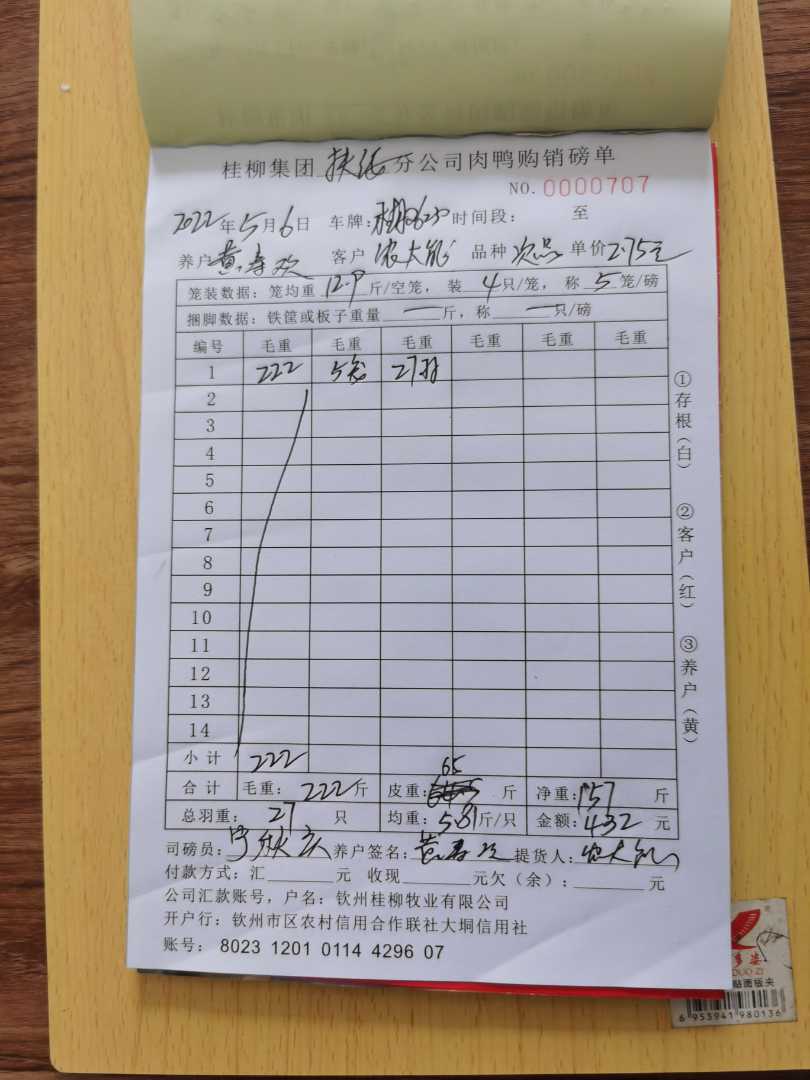 桂柳集团 扶绥 分公司肉鸭购销磅单
NO. 0000707
2022年5月6日 车牌: 时间段: 至
养户 黄寿欢 客户 农大能 品种 次品 单价 2.75元
笼装数据: 笼均重 12.9 斤/空笼, 装 4 只/笼, 称 5 笼/磅
捆脚数据: 铁筐或板子重量 — 斤, 称 — 只/磅
编号 毛重 毛重 毛重 毛重 毛重 毛重
1 222 5笼 27羽
2
3
4
5
6
7
8
9
10
11
12
13
14
小计 222
合计 毛重: 222斤 皮重: 65 斤 净重: 157 斤
总羽重: 27 只 均重: 5.81斤/只 金额: 432 元
司磅员: 养户签名: 黄寿欢 提货人: 农大能
付款方式: 汇 元 收现 元欠(余): 元
公司汇款账号, 户名: 钦州桂柳牧业有限公司
开户行: 钦州市区农村信用合作联社大垌信用社
账号: 8023 1201 0114 4296 07
①存根(白)
②客户(红)
③养户(黄)
多姿
DUO ZI
贴面板夹
6 953941 980136